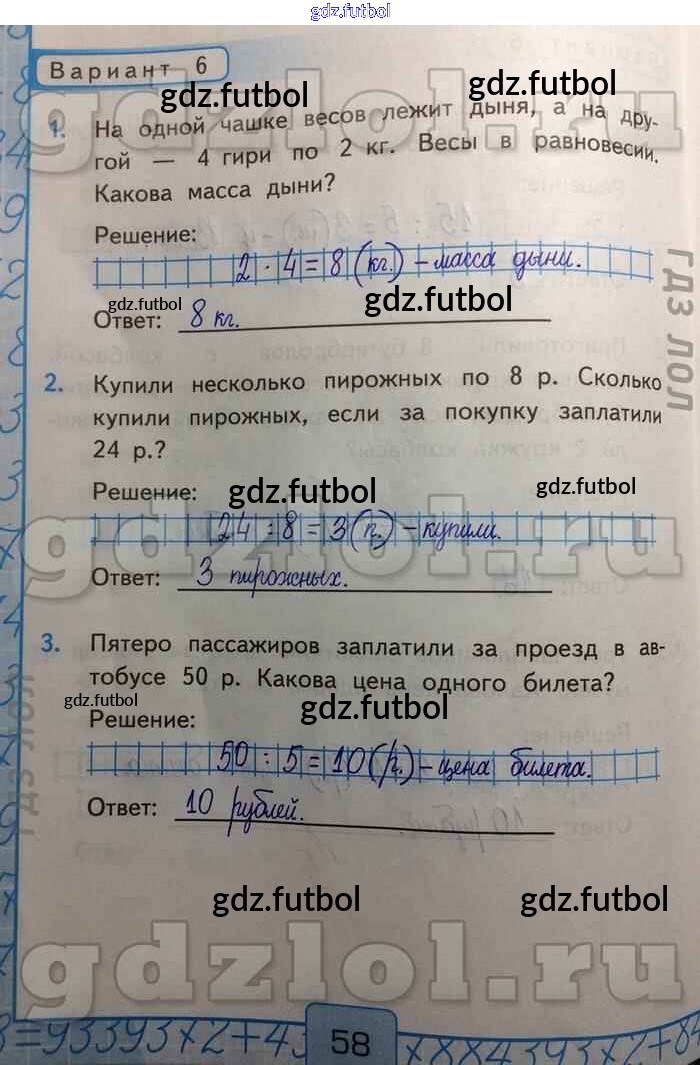 gdz.futbol
Вариант 6
gdz.futbol
gdz.futbol
gdzlol.ru
1. На одной чашке весов лежит дыня, а на дру-
гой — 4 гири по 2 кг. Весы в равновесии.
Какова масса дыни?
Решение:
2 · 4 = 8 (кг.) – масса дыни.
gdz.futbol
gdz.futbol
Ответ: 8 кг.
ГДЗ ЛОЛ
2. Купили несколько пирожных по 8 р. Сколько
купили пирожных, если за покупку заплатили
24 р.?
Решение:
gdz.futbol
gdz.futbol
24 : 8 = 3 (п.) – купили.
gdzlol.ru
Ответ: 3 пирожных.
3. Пятеро пассажиров заплатили за проезд в ав-
тобусе 50 р. Какова цена одного билета?
gdz.futbol
gdz.futbol
Решение:
50 : 5 = 10 (р.) – цена билета.
ГДЗ ЛОЛ
Ответ: 10 рублей.
gdz.futbol
gdz.futbol
gdzlol.ru
58